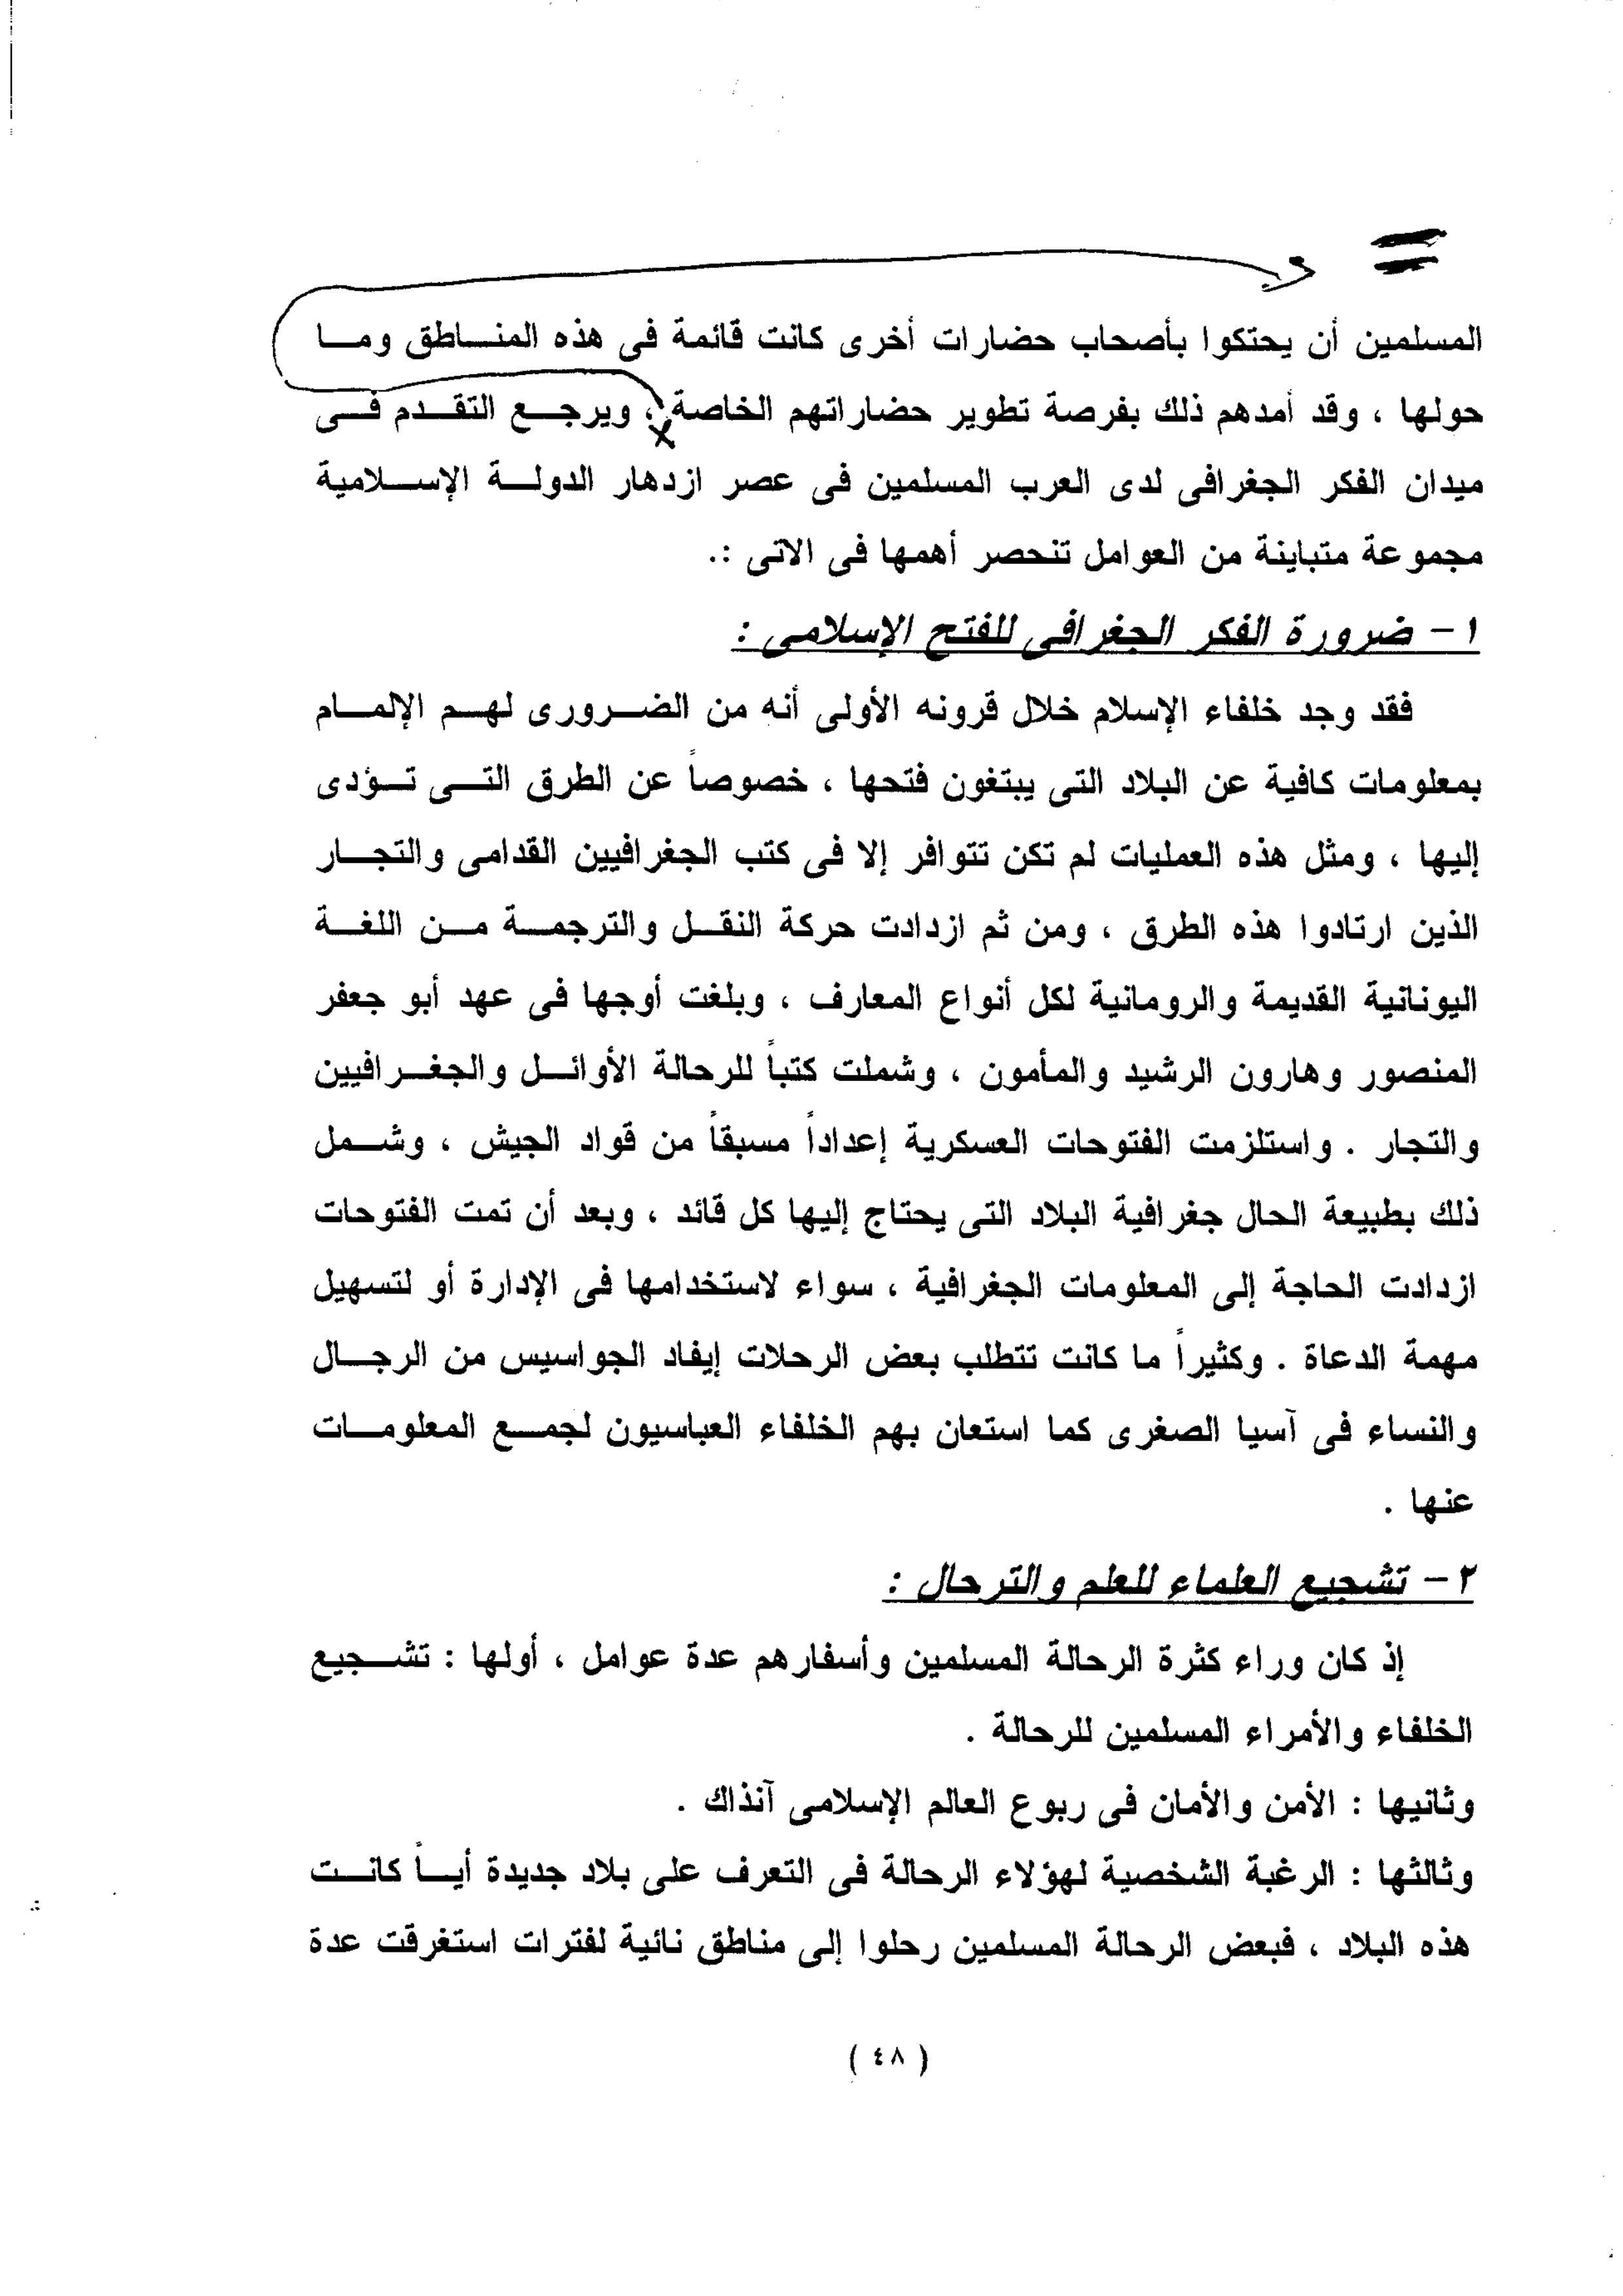 المسلمين أن يحتكوا بأصحاب حضارات أخرى كانت قائمة فى هذه المناطق وما
حولها ، وقد أمدهم ذلك بفرصة تطوير حضاراتهم الخاصة ، ويرجع التقدم فى
ميدان الفكر الجغرافى لدى العرب المسلمين فى عصر ازدهار الدولة الإسلامية
مجموعة متباينة من العوامل تنحصر أهمها فى الاتى :.
١- ضرورة الفكر الجغرافى للفتح الإسلامى :
فقد وجد خلفاء الإسلام خلال قرونه الأولى أنه من الضرورى لهم الإلمام
بمعلومات كافية عن البلاد التى يبتغون فتحها ، خصوصاً عن الطرق التى تؤدى
إليها ، ومثل هذه العمليات لم تكن تتوافر إلا فى كتب الجغرافيين القدامى والتجار
الذين ارتادوا هذه الطرق ، ومن ثم ازدادت حركة النقل والترجمة من اللغة
اليونانية القديمة والرومانية لكل أنواع المعارف ، وبلغت أوجها فى عهد أبو جعفر
المنصور وهارون الرشيد والمأمون ، وشملت كتباً للرحالة الأوائل والجغرافيين
والتجار . واستلزمت الفتوحات العسكرية إعداداً مسبقاً من قواد الجيش ، وشمل
ذلك بطبيعة الحال جغرافية البلاد التى يحتاج إليها كل قائد ، وبعد أن تمت الفتوحات
ازدادت الحاجة إلى المعلومات الجغرافية ، سواء لاستخدامها فى الإدارة أو لتسهيل
مهمة الدعاة . وكثيراً ما كانت تتطلب بعض الرحلات إيفاد الجواسيس من الرجال
والنساء فى آسيا الصغرى كما استعان بهم الخلفاء العباسيون لجمع المعلومات
عنها .
٢- تشجيع العلماء للعلم والترحال :
إذ كان وراء كثرة الرحالة المسلمين وأسفارهم عدة عوامل ، أولها : تشجيع
الخلفاء والأمراء المسلمين للرحالة .
وثانيها : الأمن والأمان فى ربوع العالم الإسلامى آنذاك .
وثالثها : الرغبة الشخصية لهؤلاء الرحالة فى التعرف على بلاد جديدة أياً كانت
هذه البلاد ، فبعض الرحالة المسلمين رحلوا إلى مناطق نائية لفترات استغرقت عدة
( ٤٨ )